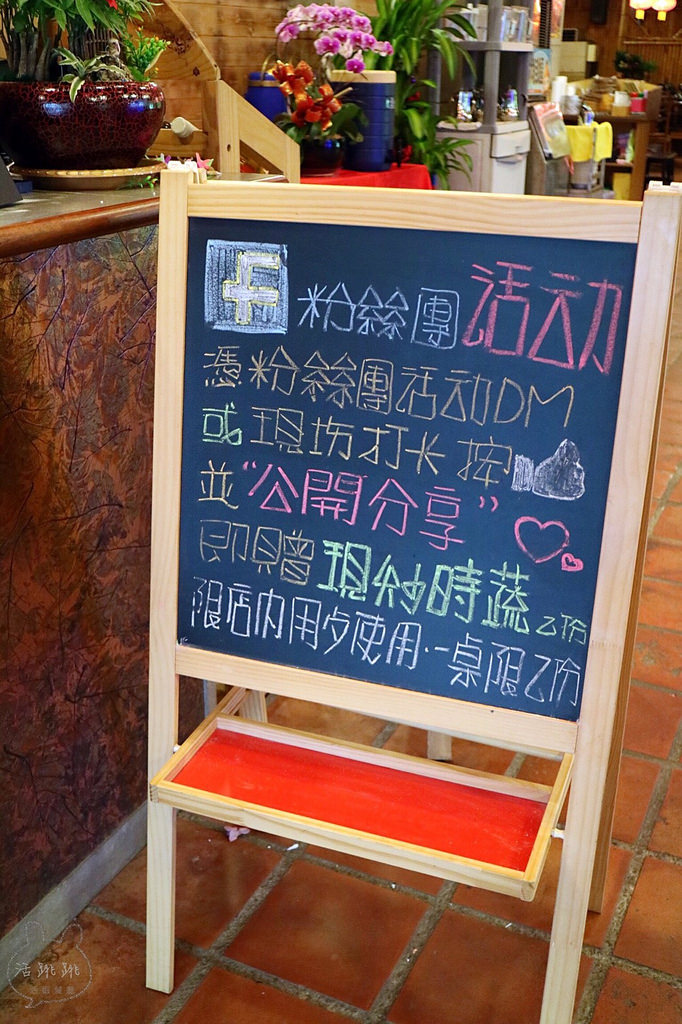 f 粉絲團活动
憑粉絲團活动DM
或現场打卡按
並"公開分享"
即贈現炒時蔬乙份
限店内用歺使用·一桌限乙份
活跳跳